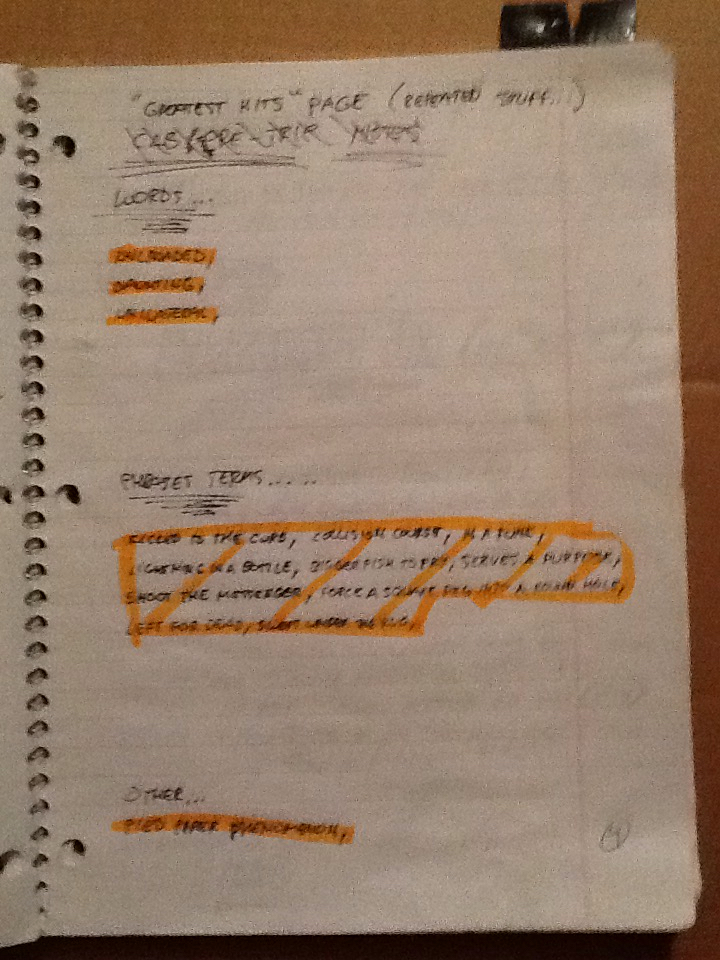 "GREATEST HITS" PAGE (REPEATED STUFF...)
NOTES
WORDS...
UNLOADED,
DAUNTING,
UNILATERAL,
PHRASES TERMS.....
KICKED TO THE CURB, COLLISION COURSE, IN A FUNK,
LIGHTNING IN A BOTTLE, BIGGER FISH TO FRY, SERVES A PURPOSE,
SHOOT THE MESSENGER, FORCE A SQUARE PEG INTO A ROUND HOLE,
LEFT FOR DEAD, SWEPT UNDER THE RUG,
OTHER...
PIED PIPER PHENOMENON,